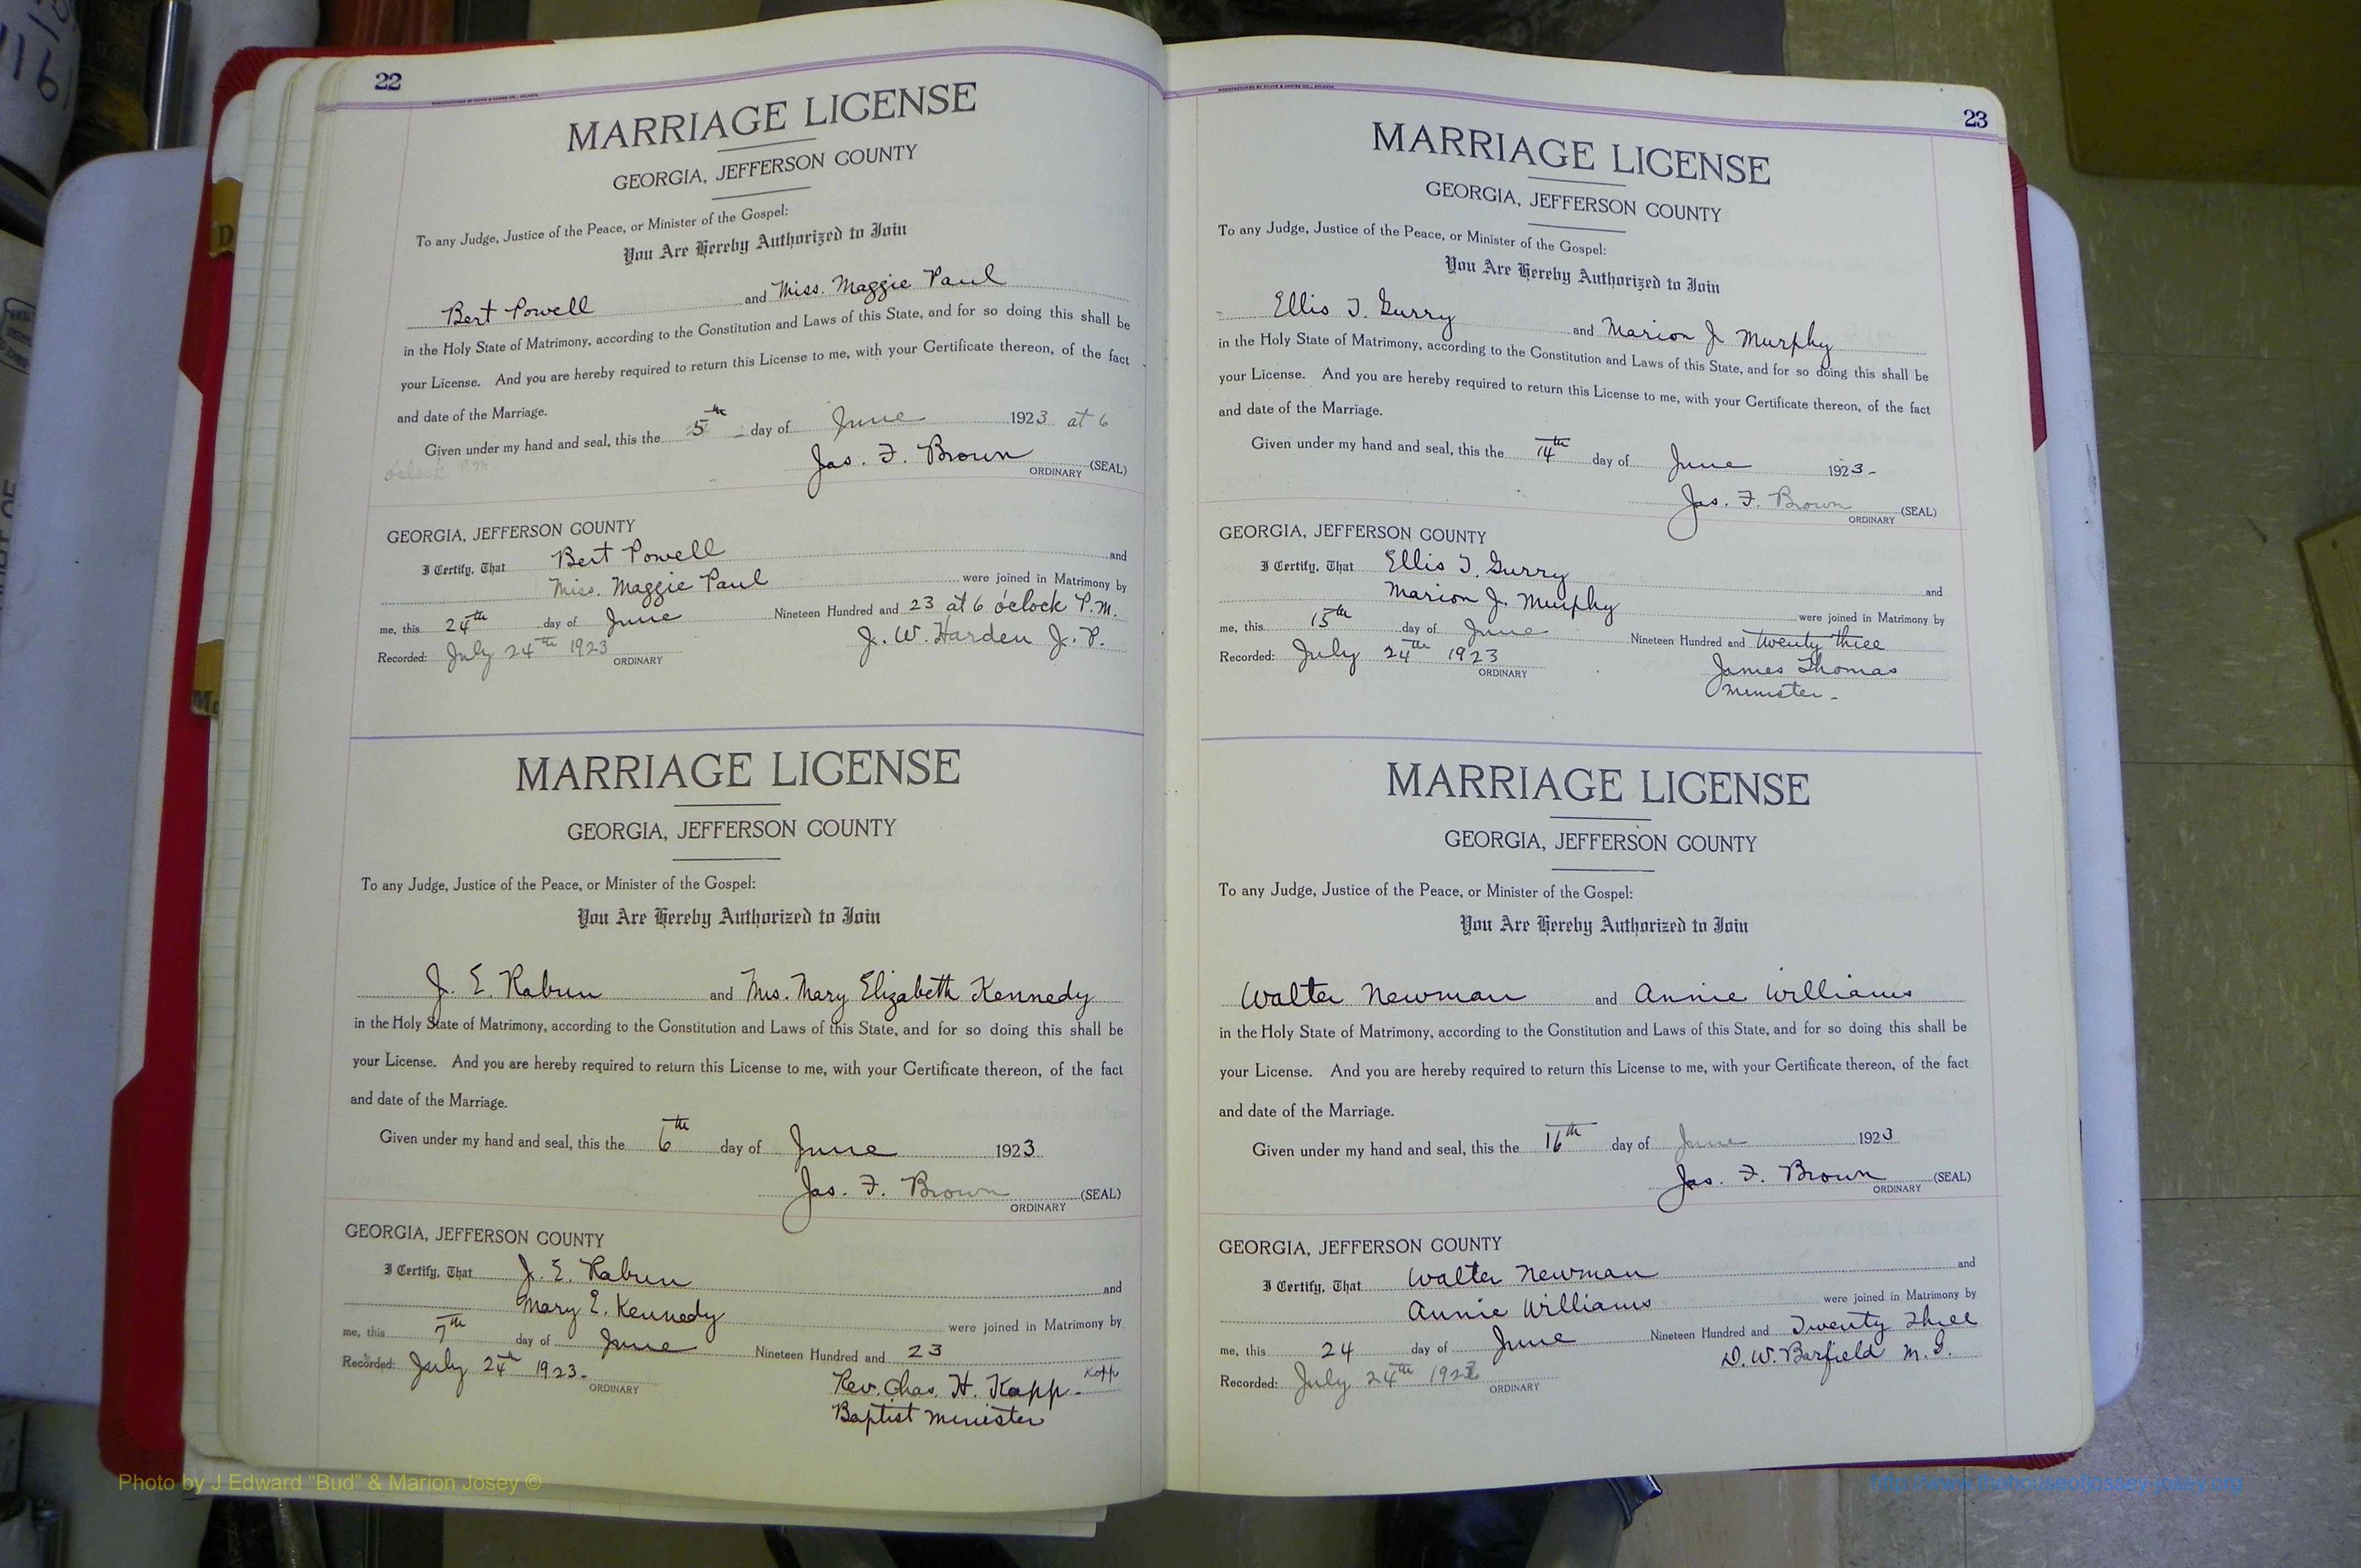 22
MARRIAGE LICENSE
GEORGIA, JEFFERSON COUNTY
To any Judge, Justice of the Peace, or Minister of the Gospel:
You Are Hereby Authorized to Join
Bert Powell and Miss. Maggie Paul
in the Holy State of Matrimony, according to the Constitution and Laws of this State, and for so doing this shall be
your License. And you are hereby required to return this License to me, with your Certificate thereon, of the fact
and date of the Marriage.
Given under my hand and seal, this the 5th day of June 1923 at 6
o'clock P.M.
Jas. F. Brown (SEAL)
ORDINARY
GEORGIA, JEFFERSON COUNTY
I Certify, That Bert Powell and
Miss. Maggie Paul were joined in Matrimony by
me, this 24th day of June Nineteen Hundred and 23 at 6 o'clock P.M.
Recorded: July 24th 1923 ORDINARY J. W. Harden J. P.
MARRIAGE LICENSE
GEORGIA, JEFFERSON COUNTY
To any Judge, Justice of the Peace, or Minister of the Gospel:
You Are Hereby Authorized to Join
J. E. Rabun and Mrs. Mary Elizabeth Kennedy
in the Holy State of Matrimony, according to the Constitution and Laws of this State, and for so doing this shall be
your License. And you are hereby required to return this License to me, with your Certificate thereon, of the fact
and date of the Marriage.
Given under my hand and seal, this the 6th day of June 1923
Jas. F. Brown (SEAL)
ORDINARY
GEORGIA, JEFFERSON COUNTY
I Certify, That J. E. Rabun and
Mary E. Kennedy were joined in Matrimony by
me, this 7th day of June Nineteen Hundred and 23
Recorded: July 24th 1923- ORDINARY Rev. Chas. H. Kopp- Kopp
Baptist Minister
23
MARRIAGE LICENSE
GEORGIA, JEFFERSON COUNTY
To any Judge, Justice of the Peace, or Minister of the Gospel:
You Are Hereby Authorized to Join
Ellis T. Gurry and Marion J Murphy
in the Holy State of Matrimony, according to the Constitution and Laws of this State, and for so doing this shall be
your License. And you are hereby required to return this License to me, with your Certificate thereon, of the fact
and date of the Marriage.
Given under my hand and seal, this the 14th day of June 1923-
Jas. F. Brown (SEAL)
ORDINARY
GEORGIA, JEFFERSON COUNTY
I Certify, That Ellis T. Gurry and
Marion J. Murphy were joined in Matrimony by
me, this 15th day of June Nineteen Hundred and twenty three
Recorded: July 24th 1923 ORDINARY James Thomas
Minister-
MARRIAGE LICENSE
GEORGIA, JEFFERSON COUNTY
To any Judge, Justice of the Peace, or Minister of the Gospel:
You Are Hereby Authorized to Join
Walter Newman and Annie Williams
in the Holy State of Matrimony, according to the Constitution and Laws of this State, and for so doing this shall be
your License. And you are hereby required to return this License to me, with your Certificate thereon, of the fact
and date of the Marriage.
Given under my hand and seal, this the 16th day of June 1923
Jas. F. Brown (SEAL)
ORDINARY
GEORGIA, JEFFERSON COUNTY
I Certify, That Walter Newman and
Annie Williams were joined in Matrimony by
me, this 24 day of June Nineteen Hundred and Twenty Three
Recorded: July 24th 1923 ORDINARY D. W. Barfield M. G.
Photo by J Edward "Bud" & Marion Josey ©